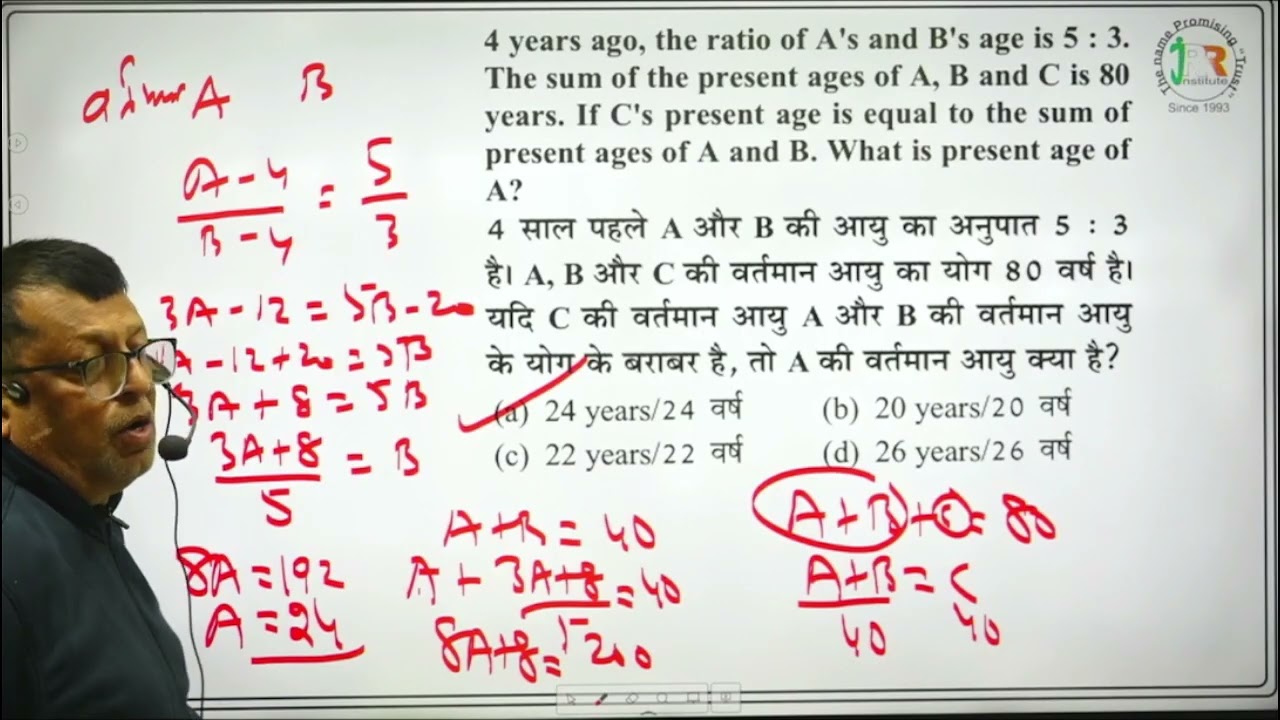 4 years ago, the ratio of A's and B's age is 5 : 3.
The sum of the present ages of A, B and C is 80
years. If C's present age is equal to the sum of
present ages of A and B. What is present age of
A?
4 साल पहले A और B की आयु का अनुपात 5 : 3
है। A, B और C की वर्तमान आयु का योग 80 वर्ष है।
यदि C की वर्तमान आयु A और B की वर्तमान आयु
के योग के बराबर है, तो A की वर्तमान आयु क्या है?
(a) 24 years/24 वर्ष (b) 20 years/20 वर्ष
(c) 22 years/22 वर्ष (d) 26 years/26 वर्ष
The name Promising "Trust"
Institute
Since 1993
A B
A-4 = 5
B-4 3
3A-12 = 5B-20
A-12+20 = 5B
3A+8 = 5B
3A+8 = B
5
8A = 192
A = 24
A+B = 40
A + 3A+8 = 40
5
8A+8 = 200
A+B+C = 80
A+B = C
40 40